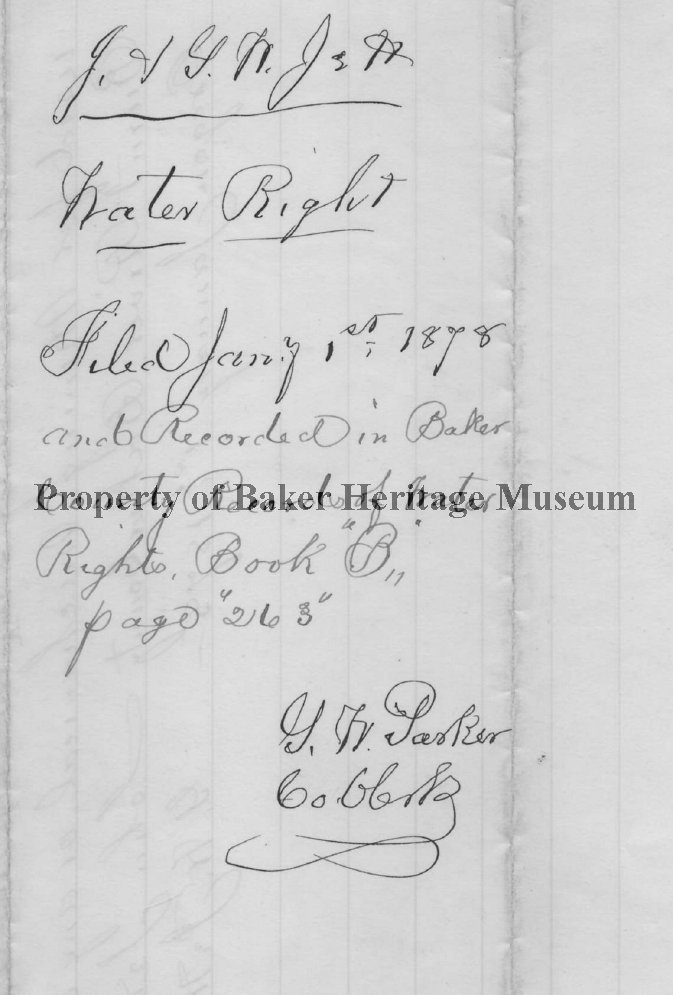 J. & G. W. Jett
Water Right
Filed Jany 1st, 1878
and Recorded in Baker
County Records of Water
Property of Baker Heritage Museum
Rights, Book "B"
page "263"
G. W. Parker
Co. Clerk